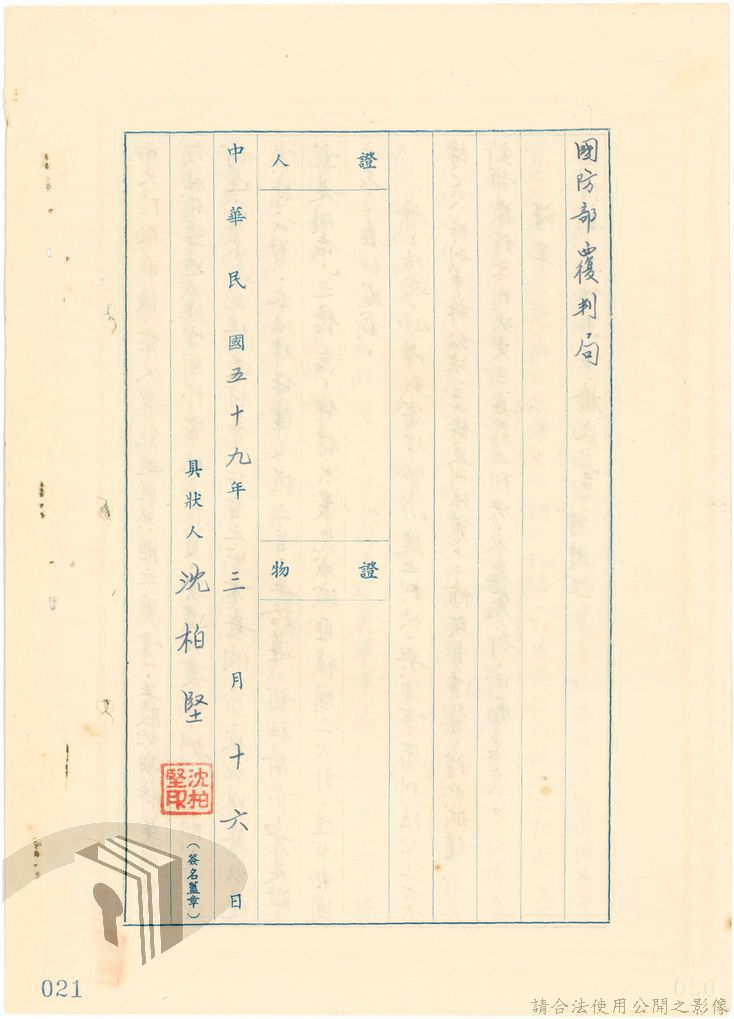 國防部覆判局
證人
證物
中華民國五十九年三月十六日
具狀人沈柏堅(簽名蓋章)
沈柏堅印
021
請合法使用公開之影像